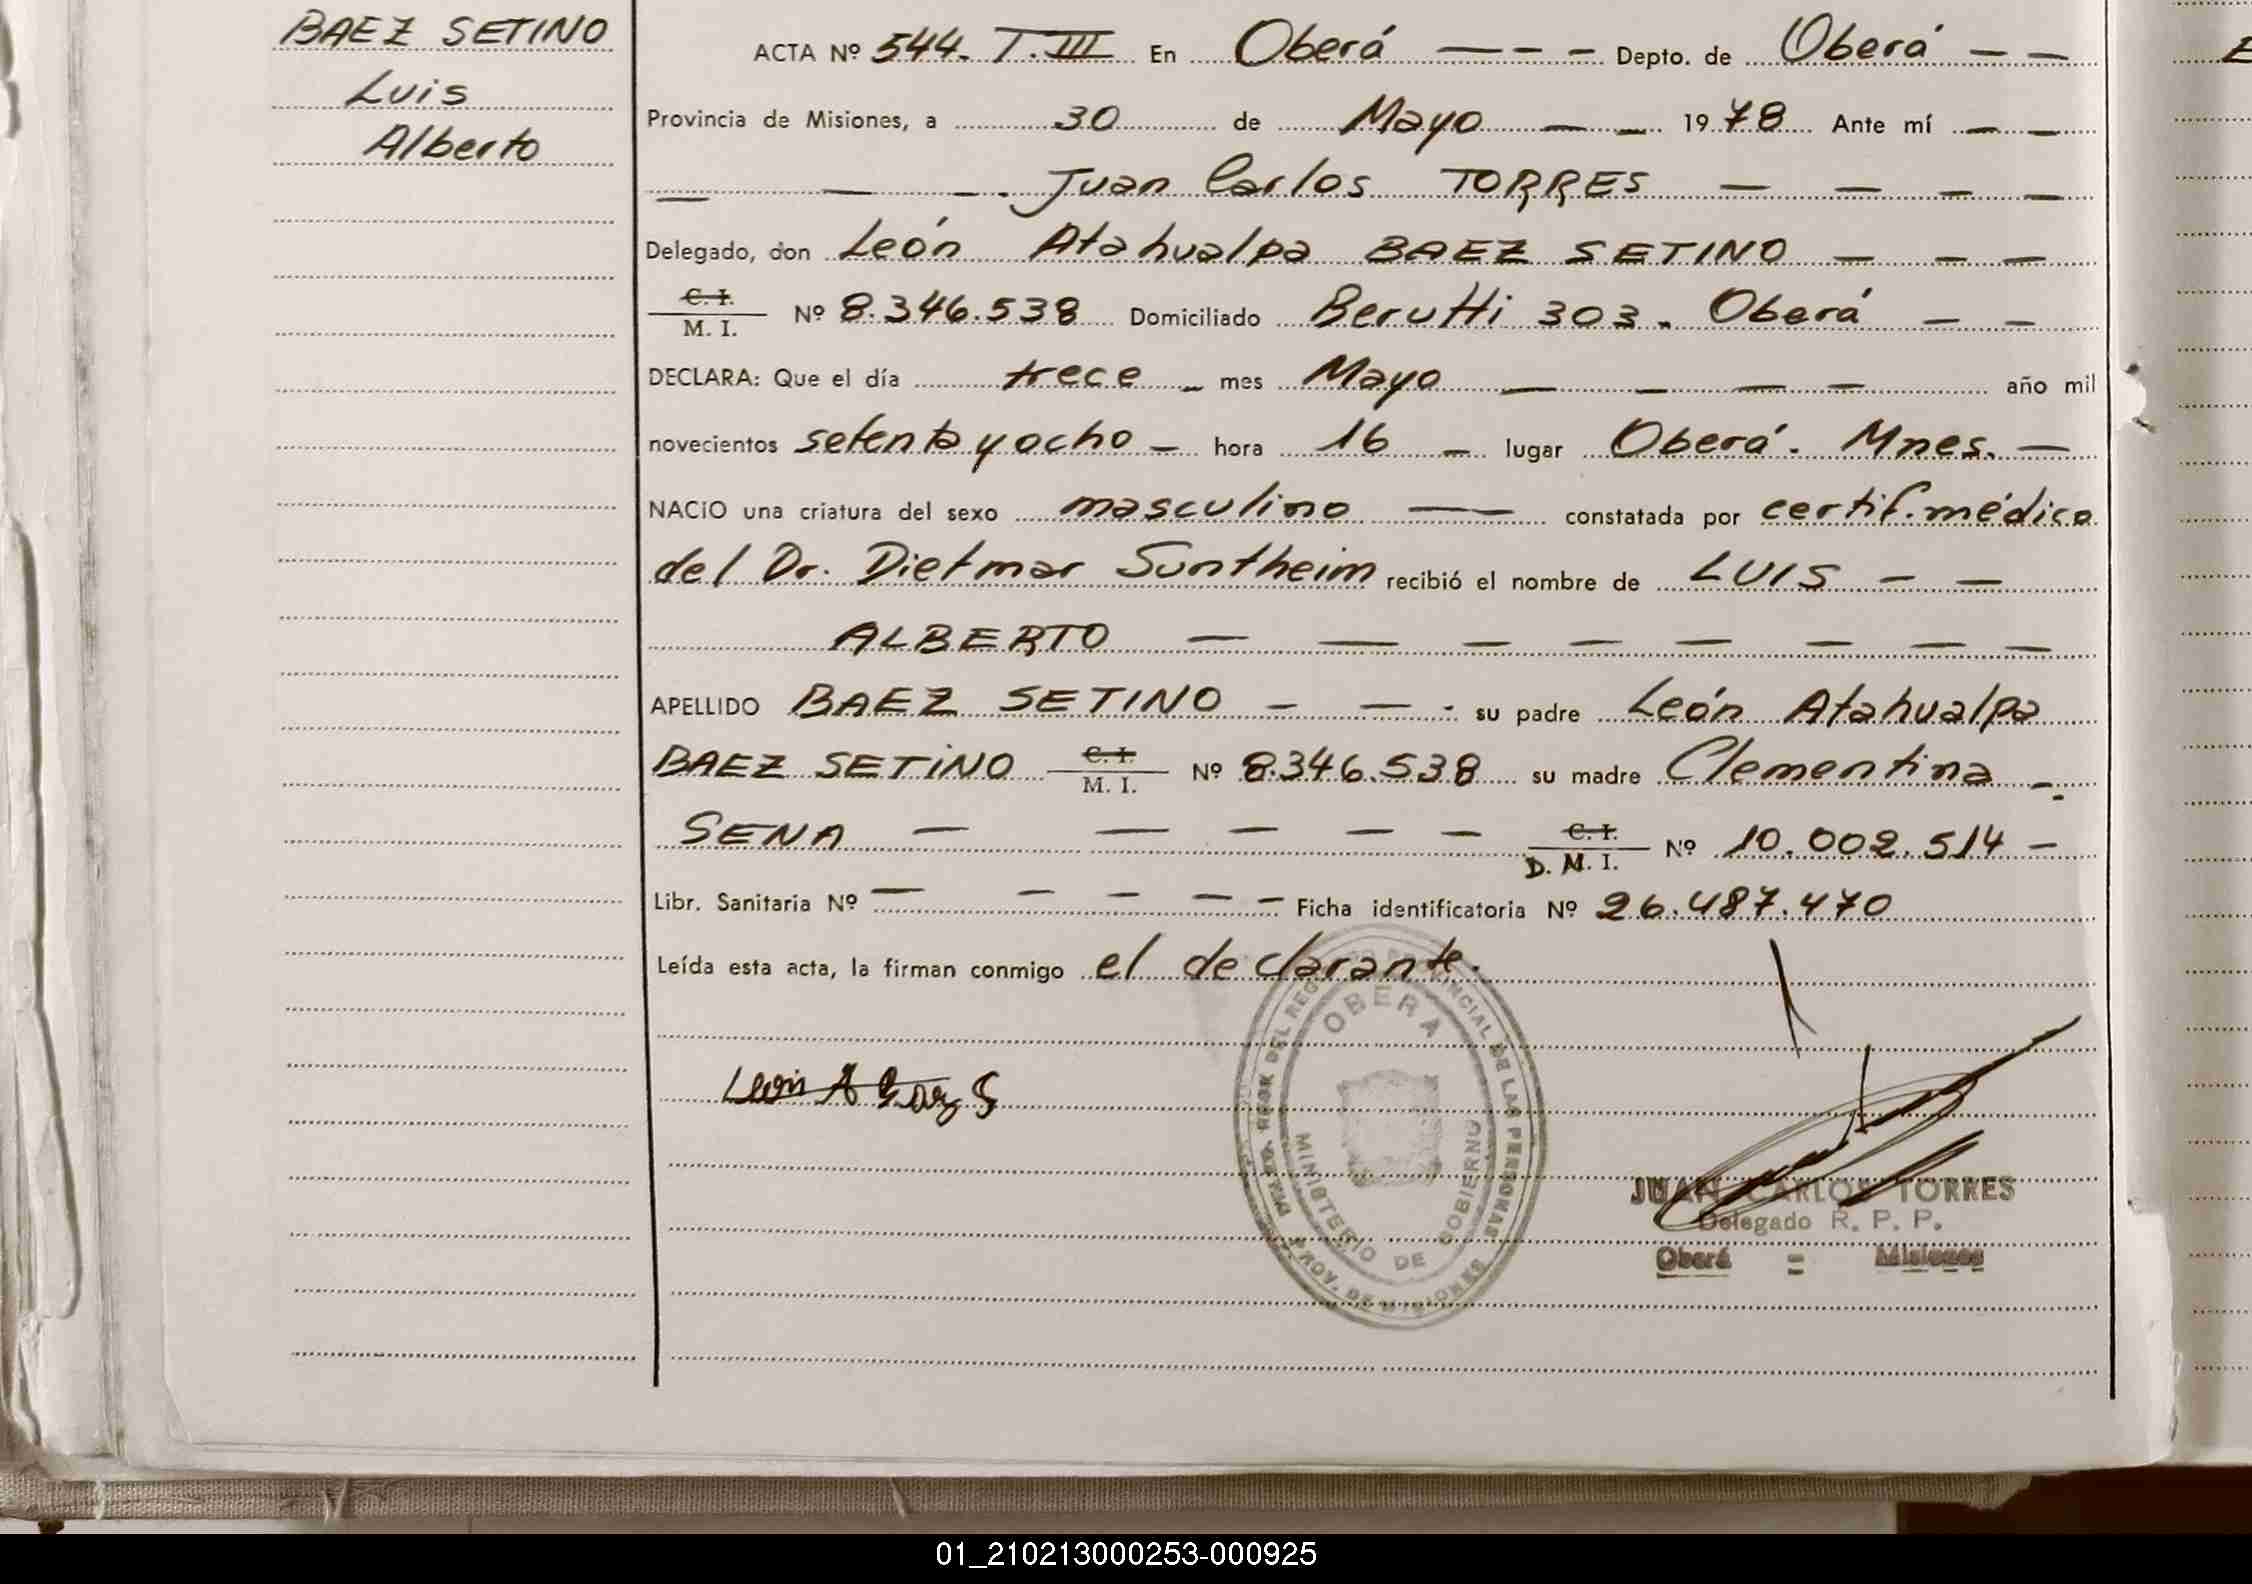 BAEZ SETINO
Luis
Alberto
ACTA Nº 544. T. III En Oberá Depto. de Oberá
Provincia de Misiones, a 30 de Mayo 1978 Ante mí
Juan Carlos TORRES
Delegado, don León Atahualpa BAEZ SETINO
C. I.
M. I. Nº 8.346.538 Domiciliado Berutti 303. Oberá
DECLARA: Que el día trece mes Mayo año mil
novecientos setenta y ocho hora 16 lugar Oberá. Mnes.
NACIO una criatura del sexo masculino constatada por certif. médico
del Dr. Dietmar Suntheim recibió el nombre de LUIS
ALBERTO
APELLIDO BAEZ SETINO su padre León Atahualpa
BAEZ SETINO C. I.
M. I. Nº 8.346.538 su madre Clementina
SENA C. I.
D. M. I. Nº 10.002.514
Libr. Sanitaria Nº Ficha identificatoria Nº 26.487.470
Leída esta acta, la firman conmigo el declarante.
OBERA
MINISTERIO DE GOBIERNO
PROV. DE MISIONES
DEL REG. PROVINCIAL DE LAS PERSONAS
León A Baez S
JUAN CARLOS TORRES
Delegado R. P. P.
Oberá = Misiones
01_210213000253-000925